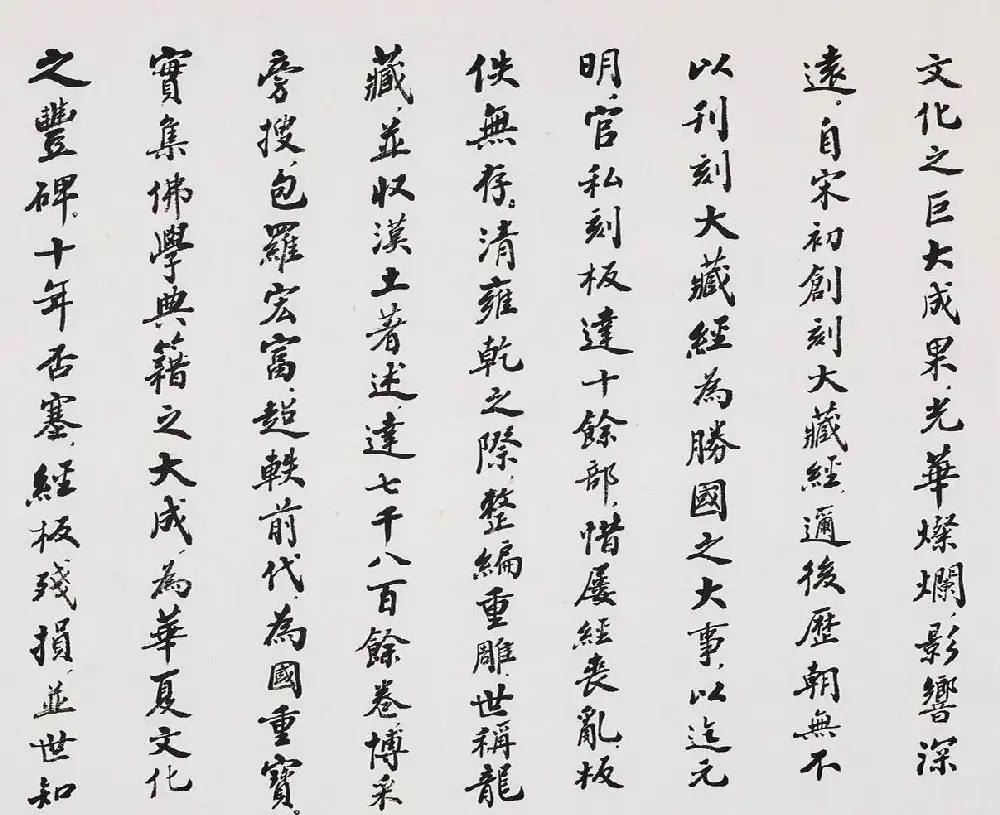 文化之巨大成果，光華燦爛，影響深
遠。自宋初創刻大藏經，邇後歷朝無不
以刊刻大藏經為勝國之大事，以迄元
明，官私刻板達十餘部，惜屢經喪亂，板
佚無存。清雍乾之際，整編重雕，世稱龍
藏，並收漢土著述，達七千八百餘卷，博采
旁搜，包羅宏富，超軼前代，為國重寶。
實集佛學典籍之大成，為華夏文化
之豐碑。十年否塞，經板殘損，並世知